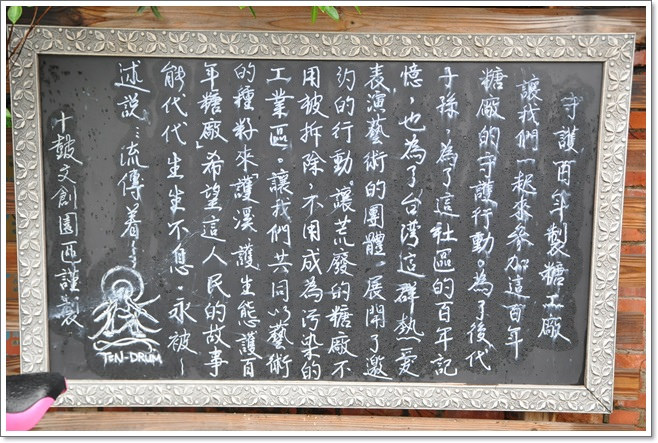 守護百年製糖工廠
讓我們一起來參加這百年
糖廠的守護行動。為了後代
子孫,為了這社區的百年記
憶,也為了台湾這群熱愛
表演藝術的團體,展開了邀
約的行動。讓荒廢的糖廠不
用被拆除,不用成為污染的
工業區。讓我們共同以藝術
的種籽來「護溪護生態護百
年糖廠」希望這人民的故事
能代代生生不息。永被~
述說…流傳着~~
十鼓文創園區謹製
TEN-DRUM